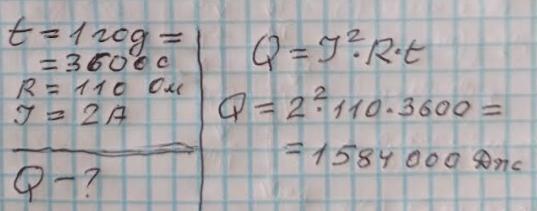 t = 1 год =
= 3600 с
R = 110 Ом
I = 2А
Q - ?
Q = I²·R·t
Q = 2²·110·3600 =
= 1584 000 Дж